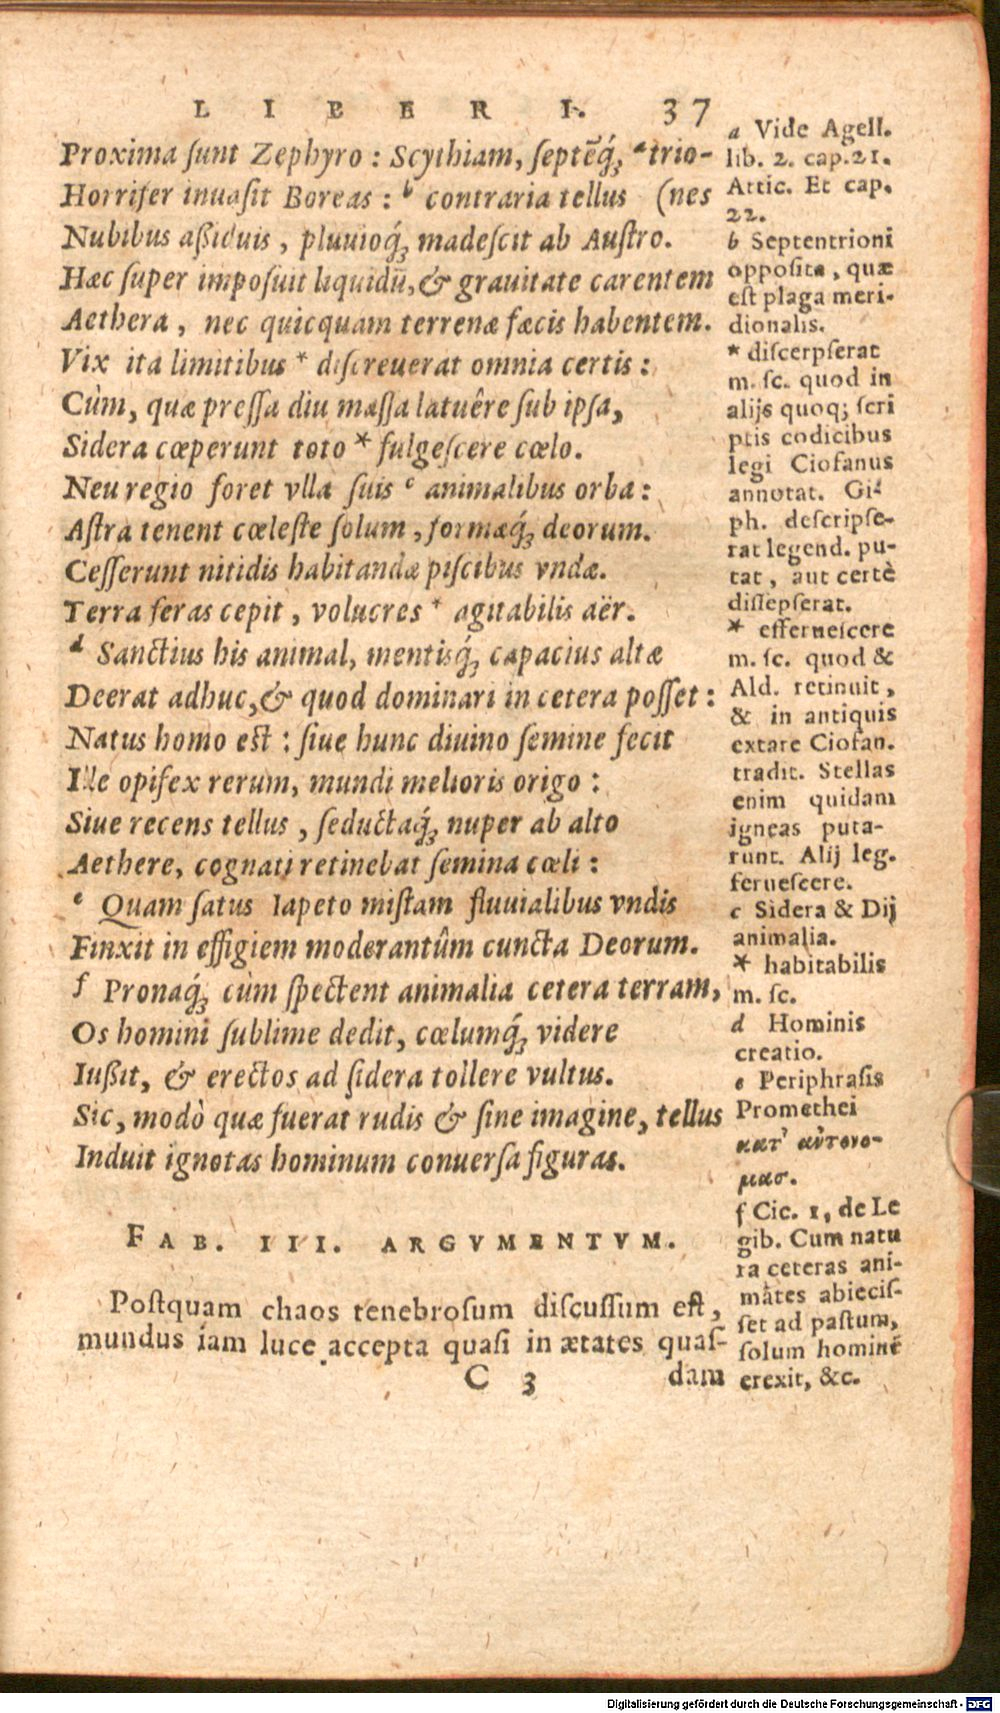 LIBER I. 37
Proxima ſunt Zephyro : Scythiam, ſeptẽq́ꝫ ᵃtrio-
Horrifer inuaſit Boreas : ᵇ contraria tellus (nes
Nubibus aßiduis, pluuioq́ꝫ madeſcit ab Auſtro.
Hæc ſuper impoſuit liquidũ, & grauitate carentem
Aethera, nec quicquam terrenæ fæcis habentem.
Vix ita limitibus * diſcreuerat omnia certis :
Cùm, quæ preſſa diu maſſa latuêre ſub ipſa,
Sidera cœperunt toto * fulgeſcere cœlo.
Neu regio foret vlla ſuis ᶜ animalibus orba :
Aſtra tenent cœleſte ſolum, formæq́ꝫ deorum.
Ceſſerunt nitidis habitandæ piſcibus vndæ.
Terra feras cepit, volucres * agitabilis aër.
ᵈ Sanctius his animal, mentisq́ꝫ capacius altæ
Deerat adhuc, & quod dominari in cetera poſſet :
Natus homo est : ſiue hunc diuino ſemine fecit
Ille opifex rerum, mundi melioris origo :
Siue recens tellus, ſeductaq́ꝫ nuper ab alto
Aethere, cognati retinebat ſemina cœli :
ᵉ Quam ſatus Iapeto miſtam fluuialibus vndis
Finxit in effigiem moderantûm cuncta Deorum.
f Pronaq́ꝫ cùm ſpectent animalia cetera terram,
Os homini ſublime dedit, cœlumq́ꝫ videre
Iußit, & erectos ad ſidera tollere vultus.
Sic, modò quæ fuerat rudis & ſine imagine, tellus
Induit ignotas hominum conuerſa figuras.
FAB. III. ARGVMENTVM.
Poſtquam chaos tenebroſum diſcuſſum eſt,
mundus iam luce accepta quaſi in ætates quaſ-
C 3 dam
a Vide Agell.
lib. 2. cap. 21.
Attic. Et cap.
22.
b Septentrioni
oppoſita, quæ
eſt plaga meri-
dionalis.
* diſcerpſerat
m. ſc. quod in
alijs quoqꝫ ſcri
ptis codicibus
legi Ciofanus
annotat. Gi-
ph. deſcripſe-
rat legend. pu-
tat, aut certè
diſſepſerat.
* efferueſcere
m. ſc. quod &
Ald. retinuit,
& in antiquis
extare Ciofan.
tradit. Stellas
enim quidam
igneas puta-
runt. Alij leg.
ferueſcere.
c Sidera & Dij
animalia.
* habitabilis
m. ſc.
d Hominis
creatio.
e Periphraſis
Promethei
κατ' αὐτονο-
μασ.
f Cic. 1, de Le
gib. Cum natu
ra ceteras ani-
mãtes abieciſ-
ſet ad paſtum,
ſolum hominẽ
erexit, &c.
Digitalisierung gefördert durch die Deutsche Forschungsgemeinschaft - DFG